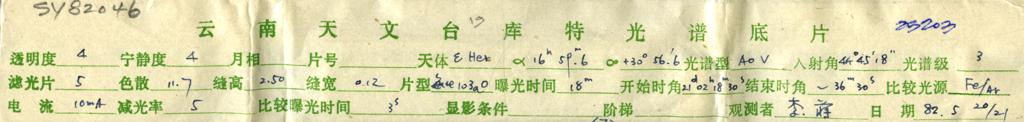 SY82046
云南天文台库特光谱底片 25203
透明度 4 宁静度 4 月相 片号 天体 ε Her α 16h 59m.6 +30° 56'.6 光谱型 A0V 入射角 44°45'18" 光谱级 3
滤光片 5 色散 11.7 缝高 2.50 缝宽 0.12 片型 103aO 曝光时间 18m 开始时角 21h 02m 18s 30s 结束时角 -36m 30s 比较光源 Fe/Ar
电流 10mA 减光率 5 比较曝光时间 3s 显影条件 阶梯 观测者 李 蒋 日期 82. 5 20/21